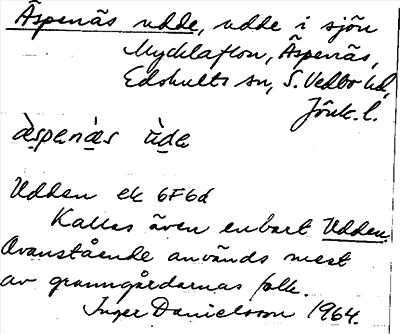 Äspenäs udde, udde i sjön
Mycklaflon, Äspenäs,
Edshults sn, S. Vedbo hd,
Jönk. l.
ä̀spenä̀s ùde
Udden ek 6F6d
Kallas även enbart Udden.
Ovanstående används mest
av granngårdarnas folk.
Inger Danielsson 1964.